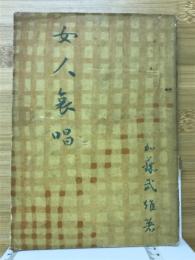 女人哀唱
加藤武雄著